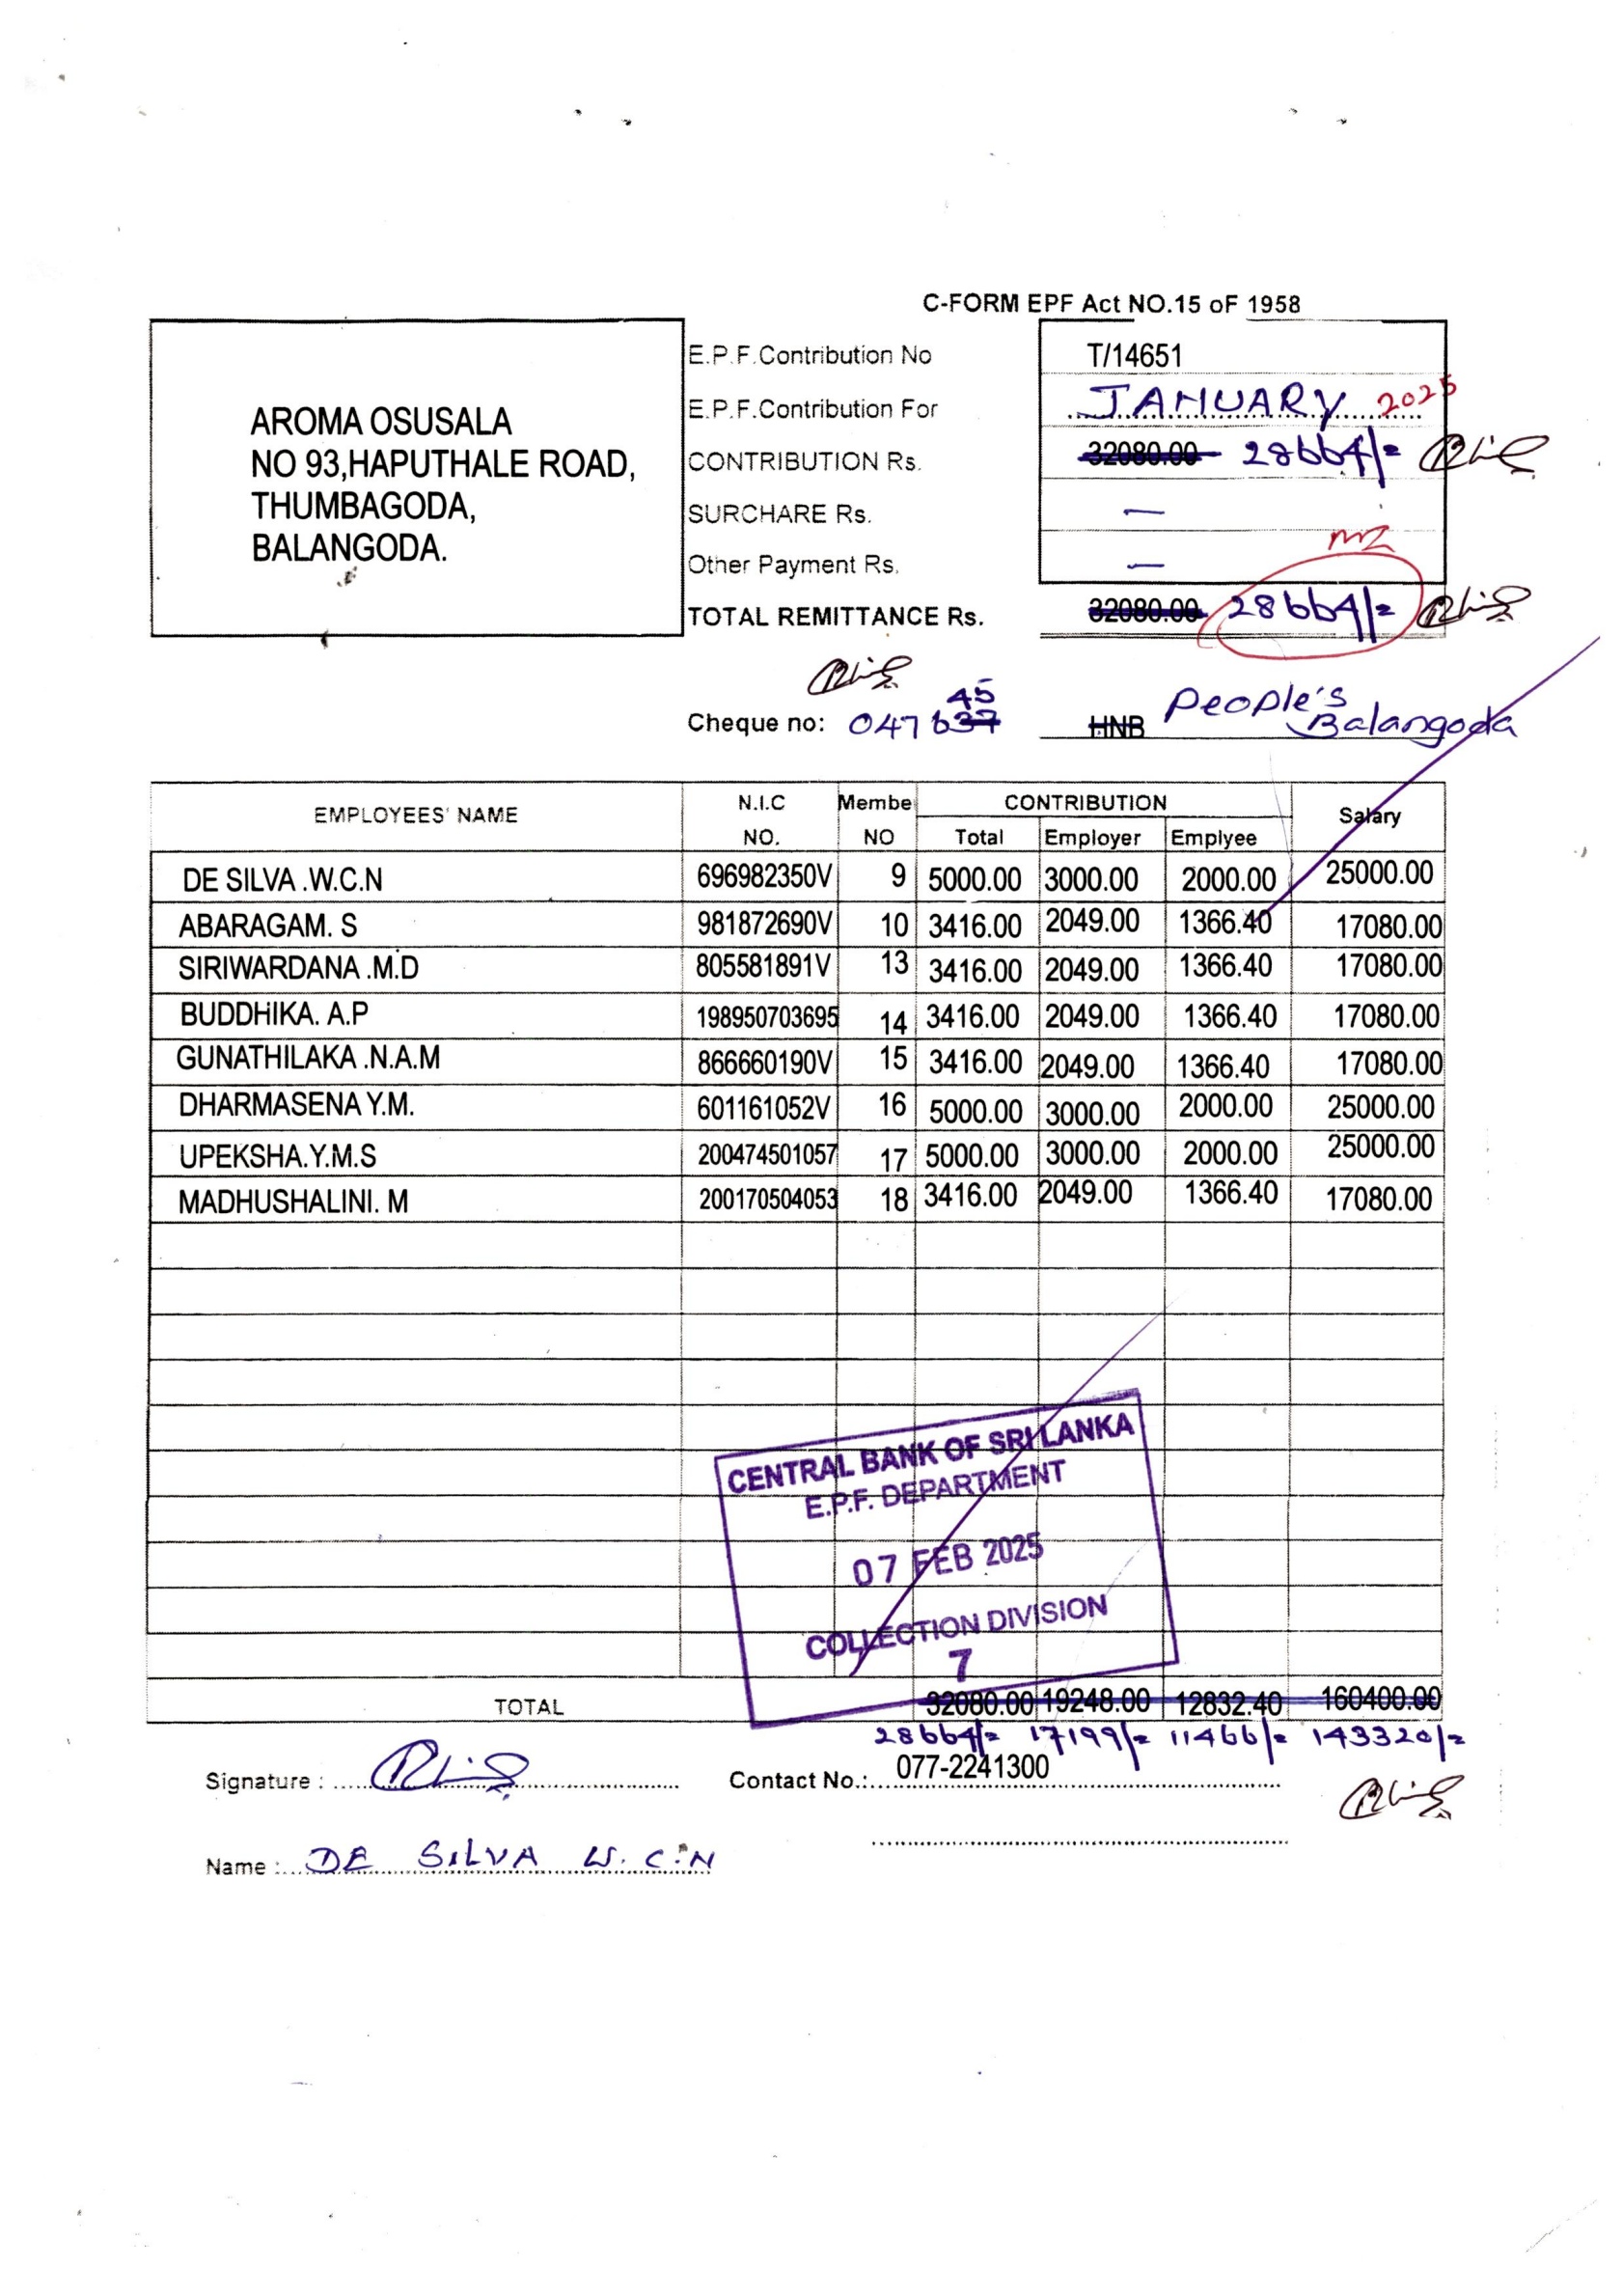 C-FORM EPF Act NO.15 oF 1958
AROMA OSUSALA
NO 93,HAPUTHALE ROAD,
THUMBAGODA,
BALANGODA.
E.P.F.Contribution No T/14651
E.P.F.Contribution For JANUARY 2025
CONTRIBUTION Rs. 32080.00 28664/=
SURCHARE Rs. —
Other Payment Rs. —
TOTAL REMITTANCE Rs. 32080.00 28664/=
Cheque no: 047637 45 HNB People's Balangoda
EMPLOYEES' NAME N.I.C NO. Membe NO CONTRIBUTION Total Employer Emplyee Salary
DE SILVA .W.C.N 696982350V 9 5000.00 3000.00 2000.00 25000.00
ABARAGAM. S 981872690V 10 3416.00 2049.00 1366.40 17080.00
SIRIWARDANA .M.D 805581891V 13 3416.00 2049.00 1366.40 17080.00
BUDDHIKA. A.P 198950703695 14 3416.00 2049.00 1366.40 17080.00
GUNATHILAKA .N.A.M 866660190V 15 3416.00 2049.00 1366.40 17080.00
DHARMASENA Y.M. 601161052V 16 5000.00 3000.00 2000.00 25000.00
UPEKSHA.Y.M.S 200474501057 17 5000.00 3000.00 2000.00 25000.00
MADHUSHALINI. M 200170504053 18 3416.00 2049.00 1366.40 17080.00
CENTRAL BANK OF SRI LANKA
E.P.F. DEPARTMENT
07 FEB 2025
COLLECTION DIVISION
7
TOTAL 32080.00 19248.00 12832.40 160400.00
28664/= 17199/= 11466/= 143320/=
Signature : Contact No.: 077-2241300
Name : DE SILVA W.C.N